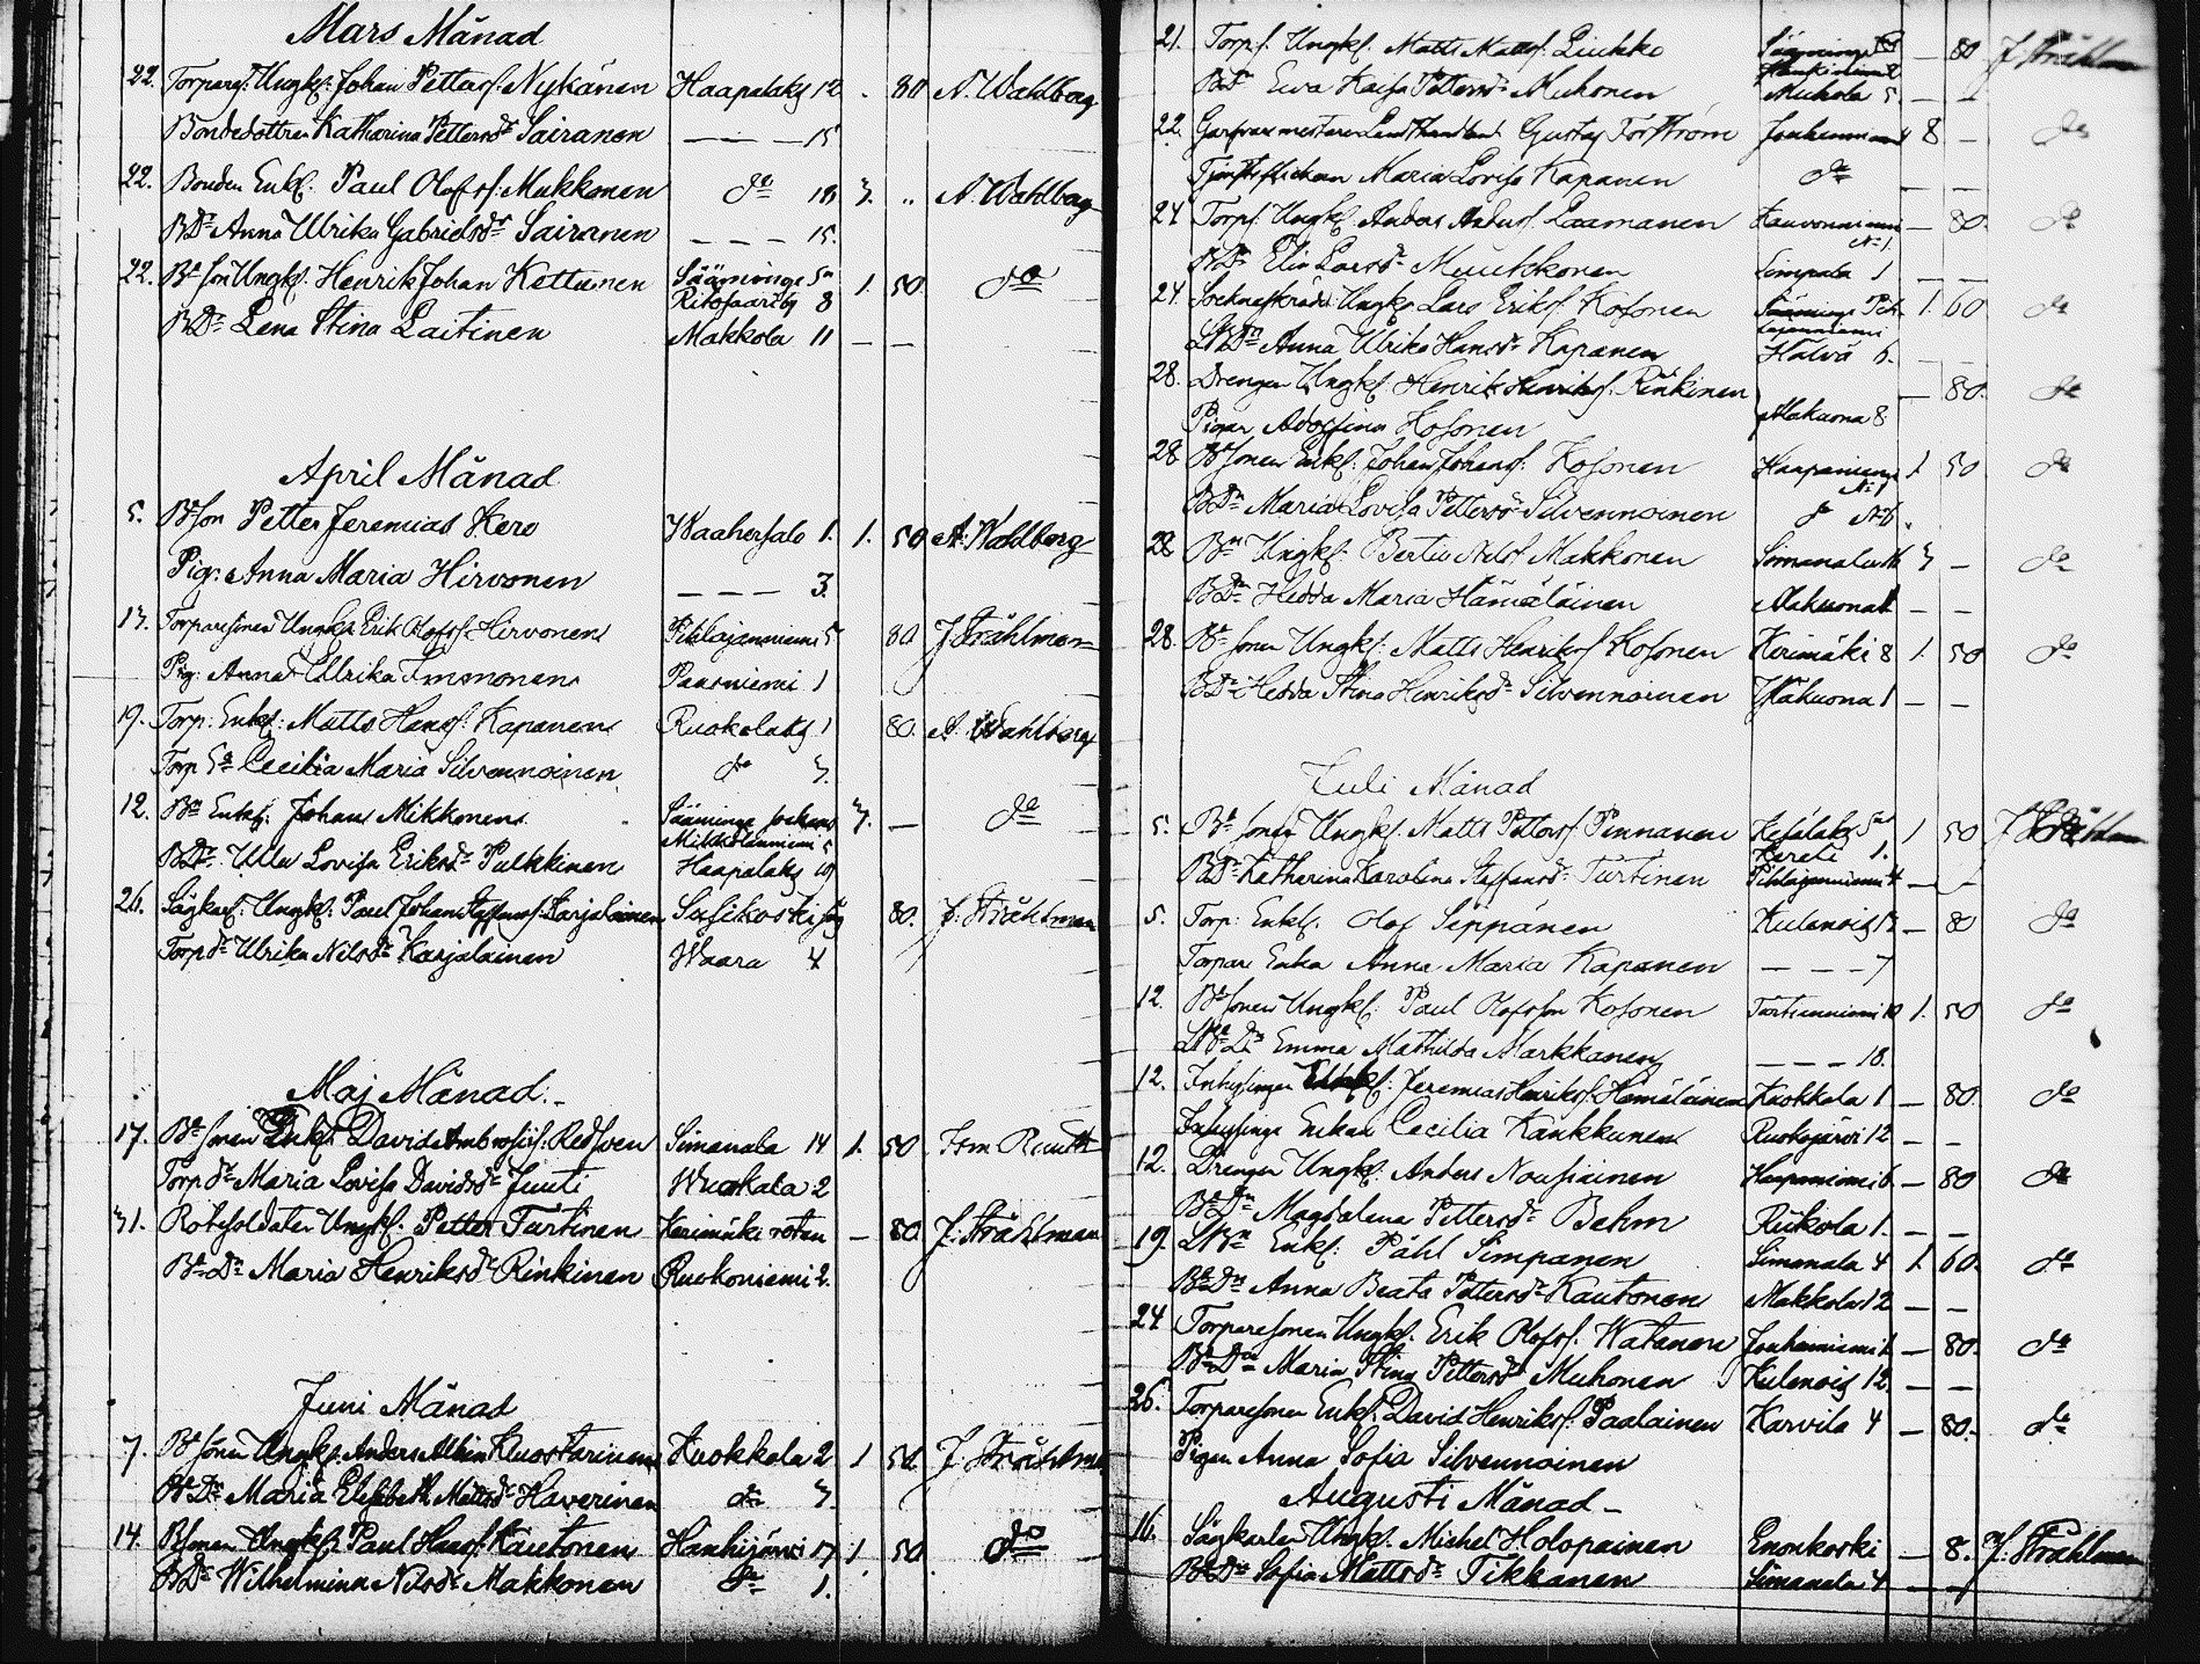 Mars Månad
22. Torpares: Ungk: Johan Petters: Nykänen Haapalaks 12 80 A. Wahlberg
Bondedottren Katharina Pettersdr Sairanen — — — 15
22. Bonden Enkl: Paul Olofss: Mukkonen do 18 3. „ A. Wahlberg
BDr Anna Ulrika Gabrielsdr Sairanen — — — 15.
22. Bdeson Ungk: Henrik Johan Kettunen Sääminge Sn 1. 50. do
Ritosaari by 8
BDr Lena Stina Laitinen Makkola 11 — —
April Månad
5. Bdeson Petter Jeremias Kero Waahersalo 1. 1. 50 A. Wahlberg
Pig: Anna Maria Hirvonen — — — 3.
13. Torparesonen Ungk: Erik Olofss: Hirvonen Pihlajanniemi 5 80 J. Stråhlman
Pig: Anna Ulrika Immonen Paasniemi 1
19. Torp: Enkl: Matts Hanss: Kapanen Ruokolaks 1 80. A. Wahlberg
Torp Ea Cecilia Maria Silvennoinen do 3.
12. Bn Enkl: Johan Mikkonen Sääminge socken 3. — do
Mikkolanniemi 5
BDr Ulla Lovisa Eriksdr Pulkkinen Haapalaks 19
26. Sågkarl: Ungk: Paul Johan Staffanss: Karjalainen Salikoski såg 80. J. Stråhlman
Torp dr Ulrika Nilsdr Karjalainen Waara 4
Maj Månad:
17. Bdesonen Enkl: David Ambrosiis: Redsven Simanala 14 1. 50
Torp dr Maria Lovisa Davidsdr Juuti Wuokala 2
31. Rotesoldaten Ungk: Petter Turtinen Kerimäki roten — 80 J. Stråhlman
Bde Dr Maria Henriksdr Rinkinen Ruokoniemi 2.
Juni Månad
7. Bdesonen Ungk: Anders Albin Kluostarinen Kuokkala 2 1 50. J. Stråhlman
Bde Dr Maria Elisabeth Mattsdr Haverinen do 3.
14. Bsonen Ungk: Paul Hanss: Kautonen Hanhijärvi 17 1 50 do
BDr Wilhelmina Nilsdr Makkonen do 1.
21. Torps: Ungk: Matts Mattss: Liukko Sääminge — 80 J. Stråhlman
BDr Eva Kaisa Pettersdr Muhonen Muhola 5 — —
22. Garfvaremästaren Gustaf Forström Jouhenniemi 4 8 — do
Tjenstflickan Maria Lovisa Kapanen do — —
24 Torps: Ungk: Anders Anderss: Laamanen Kauvonniemi — 80. do
No 1.
BDr Elin Larsdr Muukkonen Simpala 1 — —
24. Sockneskräd: Ungk: Lars Erikss: Kosonen Sääminge Pih- 1. 60 do
lajanniemi
Anna Ulrika Hansdr Kapanen Halvá 6.
28. Drengen Ungk: Henrik Henrikss: Rinkinen — 80. do
Pigan Adolfina Kosonen Makuona 8
28 Bdesonen Enkl: Johan Johanss: Kosonen Haapaniemi 1. 50 do
No 1
BDr Maria Lovisa Pettersdr Silvennoinen do No 6.
28 Bn Ungk: Bertil Nilss Makkonen Simanala 16 3 — do
BDr Hedda Maria Hämäläinen Makuona 1. — —
28. Bdesonen Ungk: Matts Henrikss Kosonen Kerimäki 8 1. 50 do
BDr Hedda Stina Henriksdr Silvennoinen Makuona 1 — —
Juli Månad
5. Bdesonen Ungk: Matts Petterss: Pennanen Kesälaks Sn 1 50 J. Stråhlman
Kereli 1.
BDr Katharina Karolina Staffansdr Turtinen Pihlajanniemi 4 — —
5. Torp: Enkl: Olof Seppänen Kulenois 13 — 80 do
Torpare Enka Anna Maria Kapanen — — — 7
12. Bdesonen Ungk: Paul Olofsson Kosonen Turtianniemi 10 1. 50 do
Emma Mathilda Markkanen — — — 18.
12. Inhysingen Enkl: Jeremias Henrikss: Hämäläinen Kuokkala 1 — 80. do
Inhysinge Enkan Cecilia Kankkunen Ruokojärvi 12 — —
12. Drengen Ungk: Anders Nousiainen Haapaniemi 6 — 80 do
Bde Dn Magdalena Pettersdr Behm Riikola 1. — —
19. Enkl: Påhl Simpanen Simanala 4 1. 60. do
Bde Dn Anna Beata Pettersdr Kautonen Makkola 12 — —
24 Torparesonen Ungk: Erik Olofss: Watanen Jouhenniemi 1 — 80. do
Bde Dn Maria Stina Pettersdr Muhonen Kulenois 12 — —
26. Torparesonen Enkl: David Henrikss: Paalainen Karvila 4 — 80.- do
Pigan Anna Sofia Silvennoinen
Augusti Månad —
16. Sågkarlen Ungk: Michel Holopainen Enonkoski — 8. J. Stråhlman
Bde Dn Sofia Mattsdr Tikkanen Simanala 4 — —